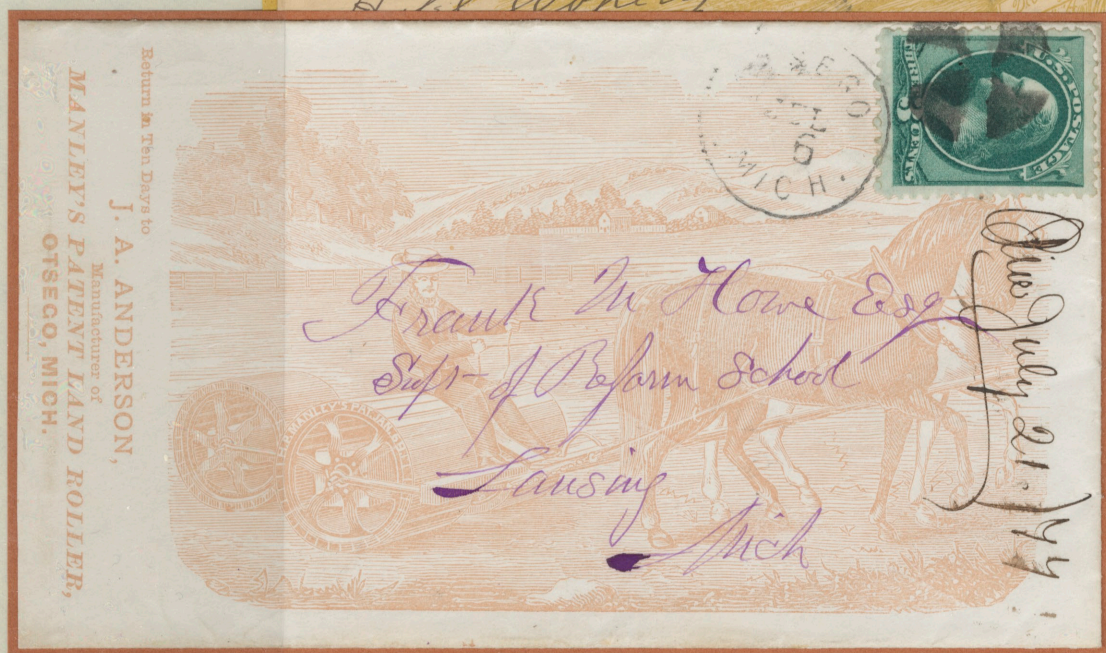 Return in Ten Days to
J. A. ANDERSON,
Manufacturer of
MANLEY'S PATENT LAND ROLLER,
OTSEGO, MICH.
MICH.
U.S. POSTAGE
THREE 3 CENTS
Frank M Howe Esq
Supt of Reform School
Lansing
Mich
July 21
MANLEY'S PATENT